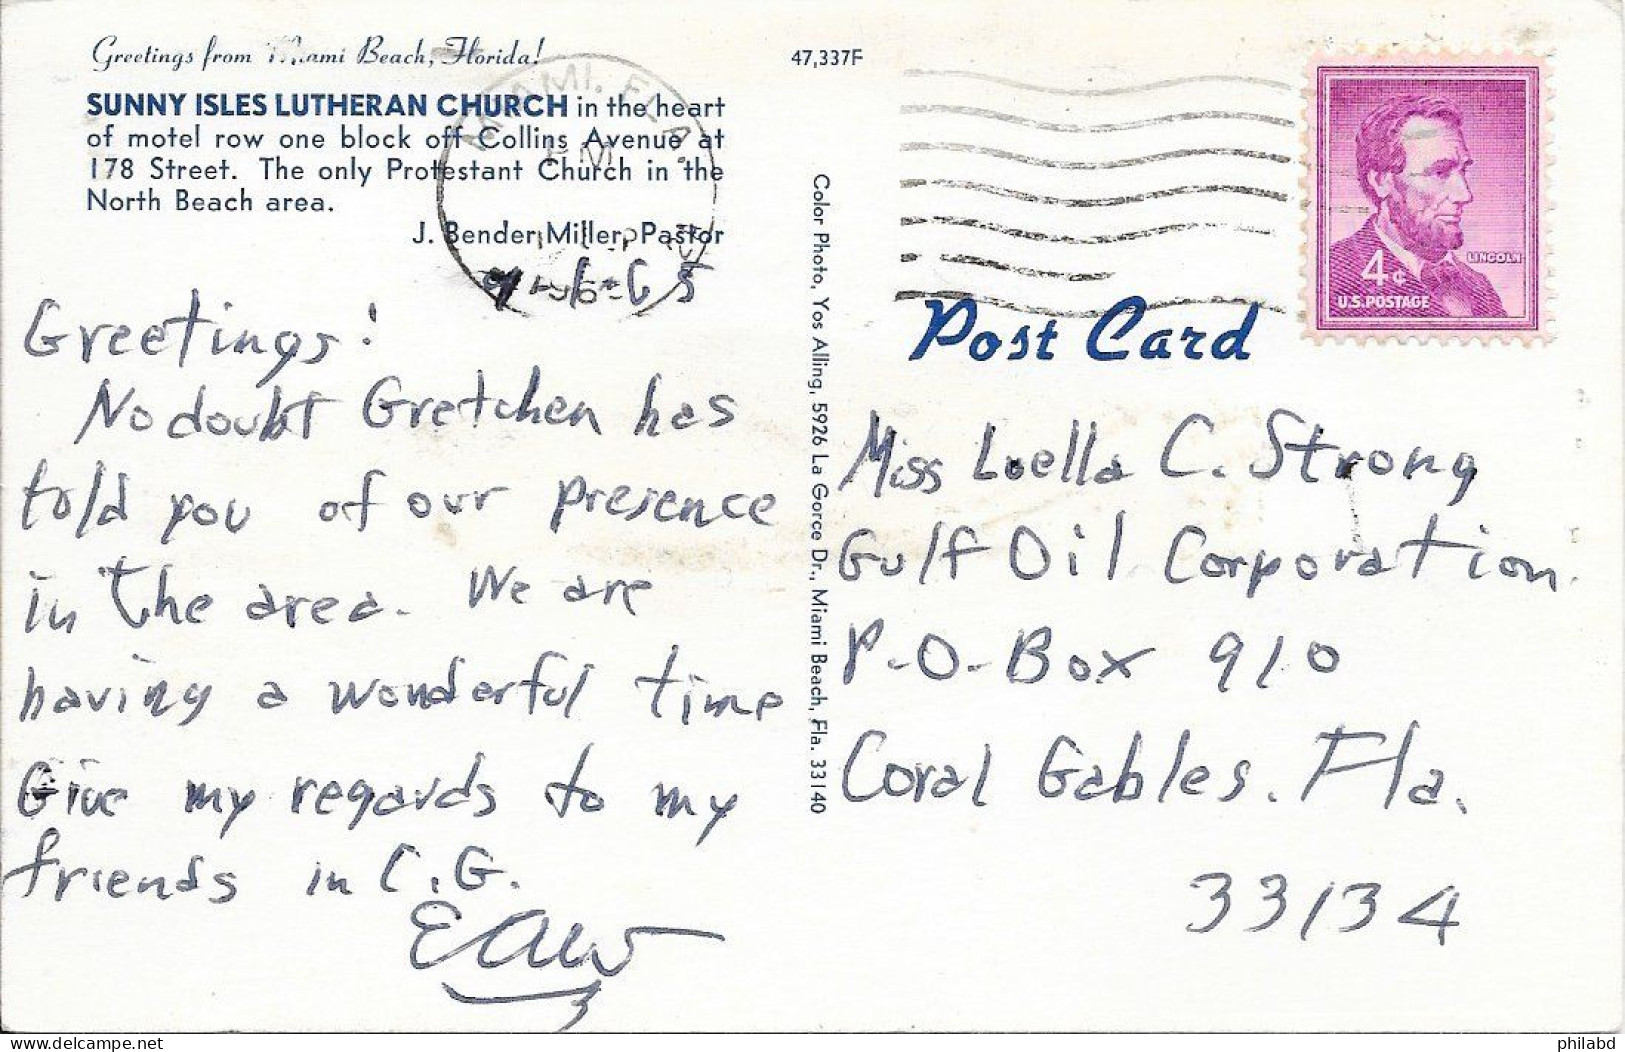 Greetings from Miami Beach, Florida!
SUNNY ISLES LUTHERAN CHURCH in the heart
of motel row one block off Collins Avenue at
178 Street. The only Protestant Church in the
North Beach area.
J. Bender Miller, Pastor
MIAMI, FLA.
PM
Greetings!
No doubt Gretchen has
told you of our presence
in the area. We are
having a wonderful time
Give my regards to my
friends in C.G.
47,337F
Color Photo, Yos Alling, 5926 La Gorce Dr., Miami Beach, Fla. 33140
LINCOLN
4¢
U.S. POSTAGE
Post Card
Miss Luella C. Strong
Gulf Oil Corporation
P.O. Box 910
Coral Gables. Fla.
33134
philabd